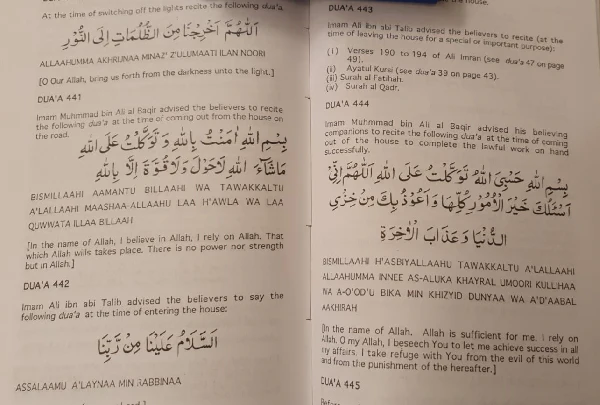 At the time of switching off the lights recite the following dua'a.
اَللّٰهُمَّ اَخْرِجْنَا مِنَ الظُّلُمَاتِ اِلَى النُّوْرِ
ALLAAHUMMA AKHRIJNAA MINAZ' Z'ULUMAATI ILAN NOORI
[O Our Allah, bring us forth from the darkness unto the light.]
DUA'A 441
Imam Muhmmad bin Ali al Baqir advised the believers to recite
the following dua'a at the time of coming out from the house on
the road.
بِسْمِ اللّٰهِ اٰمَنْتُ بِاللّٰهِ وَ تَوَكَّلْتُ عَلَى اللّٰهِ
مَاشَآءَ اللّٰهُ لَاحَوْلَ وَلَا قُوَّةَ اِلَّا بِاللّٰهِ
BISMILLAAHI AAMANTU BILLAAHI WA TAWAKKALTU
A'LALLAAHI MAASHAA-ALLAAHU LAA H'AWLA WA LAA
QUWWATA ILLAA BILLAAH
[In the name of Allah, I believe in Allah, I rely on Allah. That
which Allah wills takes place. There is no power nor strength
but in Allah.]
DUA'A 442
Imam Ali ibn abi Talib advised the believers to say the
following dua'a at the time of entering the house:
اَلسَّلَامُ عَلَيْنَا مِنْ رَبِّنَا
ASSALAAMU A'LAYNAA MIN RABBINAA
the house.
DUA'A 443
Imam Ali ibn abi Talib advised the believers to recite (at the
time of leaving the house for a special or important purpose):
(i) Verses 190 to 194 of Ali Imran (see dua'a 47 on page
49).
(ii) Ayatul Kursi (see dua'a 39 on page 43).
(iii) Surah al Fatihah.
(iv) Surah al Qadr.
DUA'A 444
Imam Muhmmad bin Ali al Baqir advised his believing
companions to recite the following dua'a at the time of coming
out of the house to complete the lawful work on hand
successfully.
بِسْمِ اللّٰهِ حَسْبِيَ اللّٰهُ تَوَكَّلْتُ عَلَى اللّٰهِ اَللّٰهُمَّ اِنِّيْ
اَسْئَلُكَ خَيْرَ الْاُمُوْرِ كُلِّهَا وَ اَعُوْذُ بِكَ مِنْ خِزْيِ
الدُّنْيَا وَعَذَابَ الْاٰخِرَةِ
BISMILLAAHI H'ASBIYALLAAHU TAWAKKALTU A'LALLAAHI
ALLAAHUMMA INNEE AS-ALUKA KHAYRAL UMOORI KULLIHAA
WA A-O'OD'U BIKA MIN KHIZYID DUNYAA WA A'D'AABAL
AAKHIRAH
[In the name of Allah. Allah is sufficient for me. I rely on
Allah. O my Allah, I beseech You to let me achieve success in all
my affairs. I take refuge with You from the evil of this world
and from the punishment of the hereafter.]
DUA'A 445